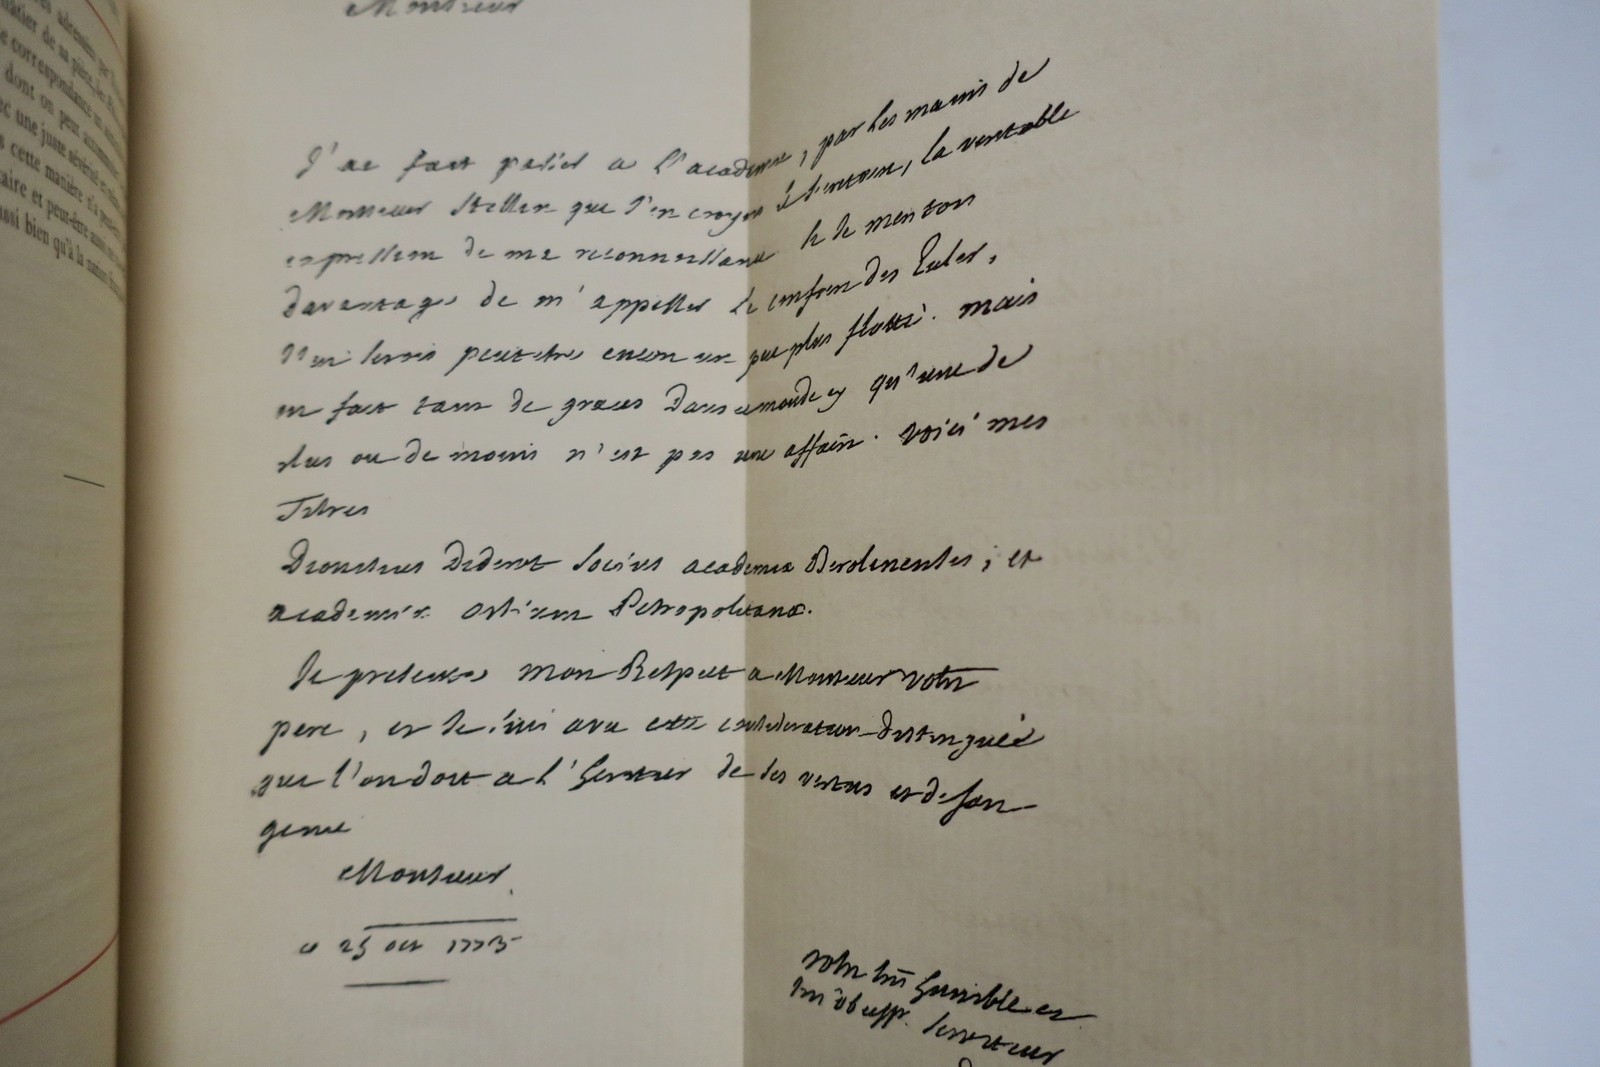 Monsieur
J'ai fait passer a l'academie, par les mains de
Monsieur Stellin que j'en croyois le secretaire, la veritable
expression de ma reconnoissance. Je le menton
davantage de m'appeller le confrere des Euler,
j'en serois peut etre encore un peu plus flatté. mais
on fait tant de graces dans ce monde cy qu'une de
plus ou de moins n'est pas une affaire. voici mes
Titres
Dionisius Diderot Socius academiae Berolinensis; et
academiae artium Petropolitanae.
Je presente mon Respect a Monsieur votre
pere, et je suis avec cette consideration distinguée
que l'on doit a l'heritier de ses vertus et de son
genie
Monsieur
a 25 oct 1773
votre tres humble et
tres obeiss. serviteur
adressées par
de sa pièce, les
correspondance
dont on peut
une juste sévérité
cette manière
et peut-être
aussi bien qu'à la